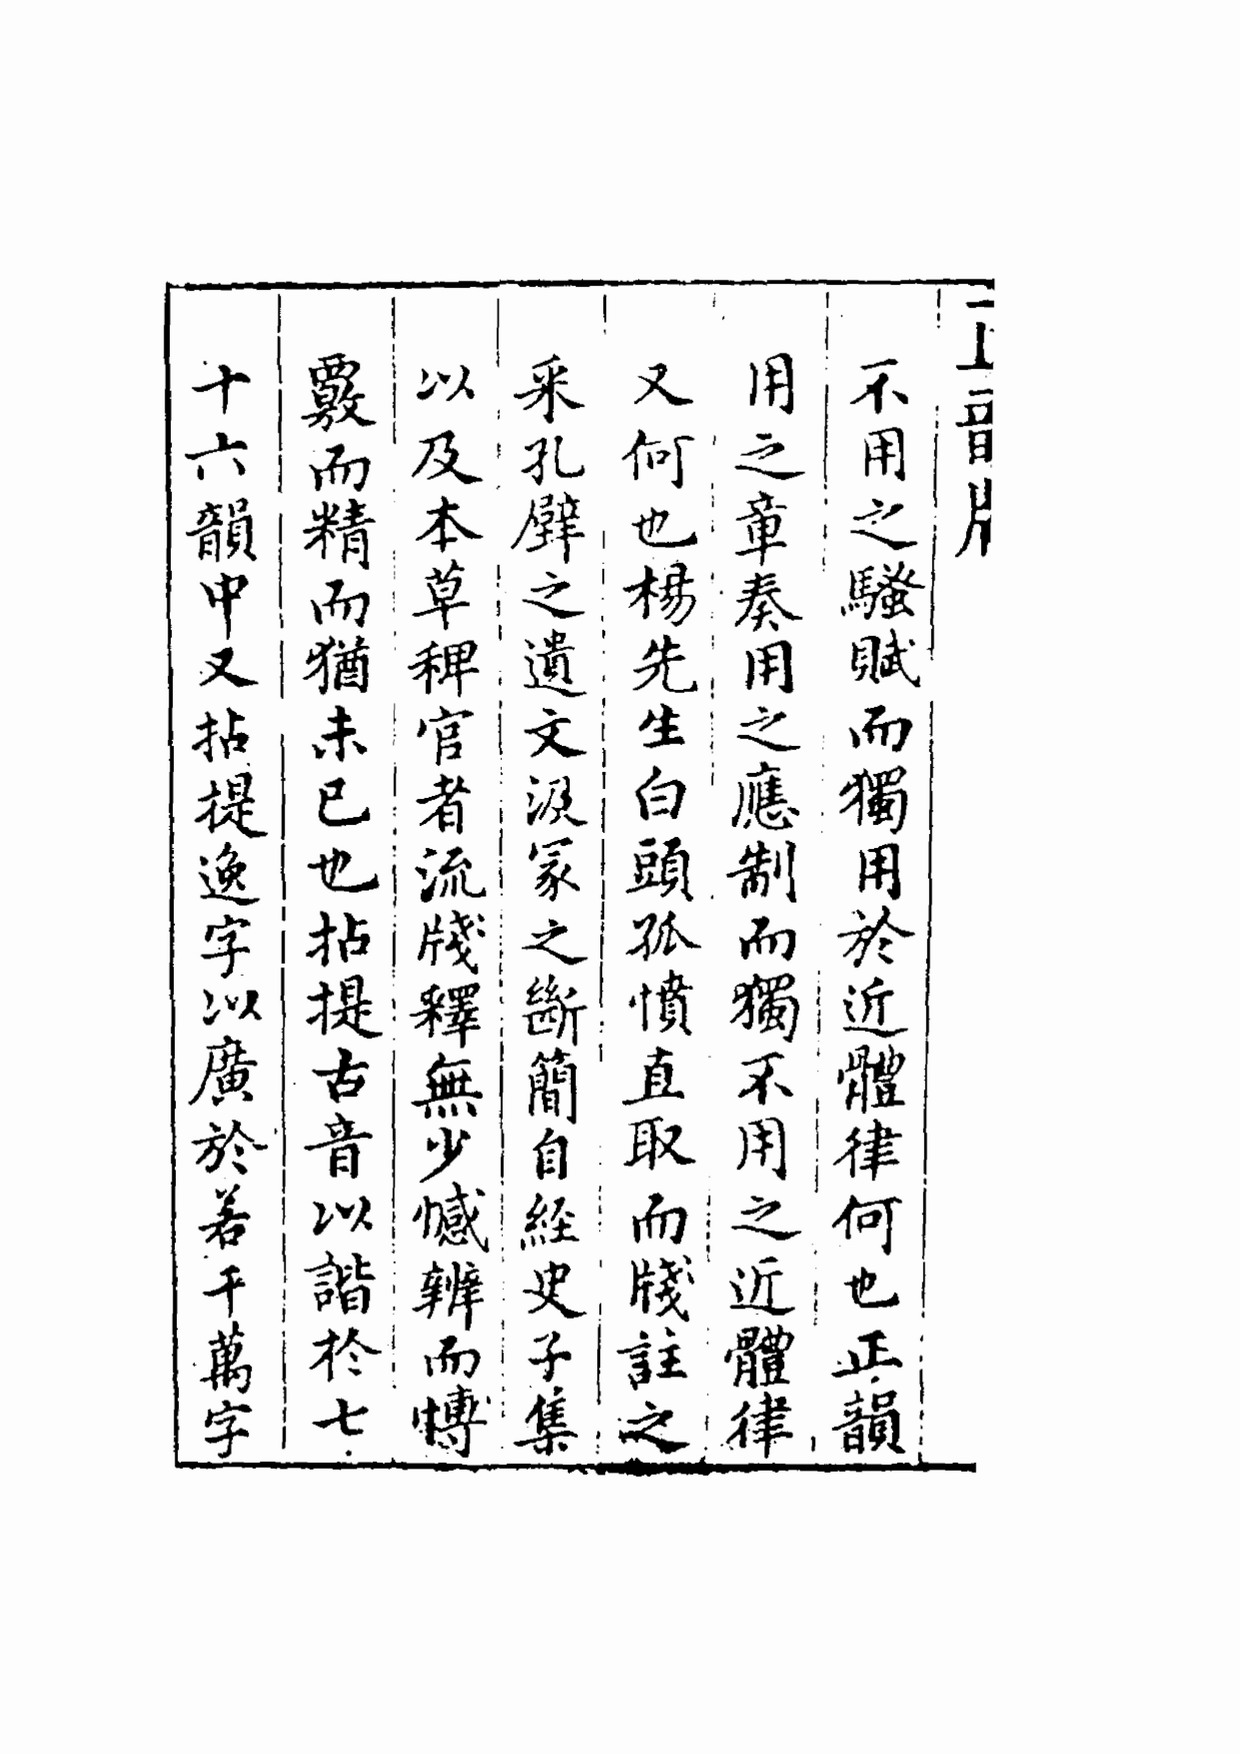 不用之騷賦而獨用於近體律何也正韻
用之章奏用之應制而獨不用之近體律
又何也楊先生白頭孤憤直取而牋註之
采孔壁之遺文汲冢之斷簡自經史子集
以及本草稗官者流牋釋無少憾辨而博
覈而精而猶未已也拈提古音以諧於七
十六韻中又拈提逸字以廣於若干萬字